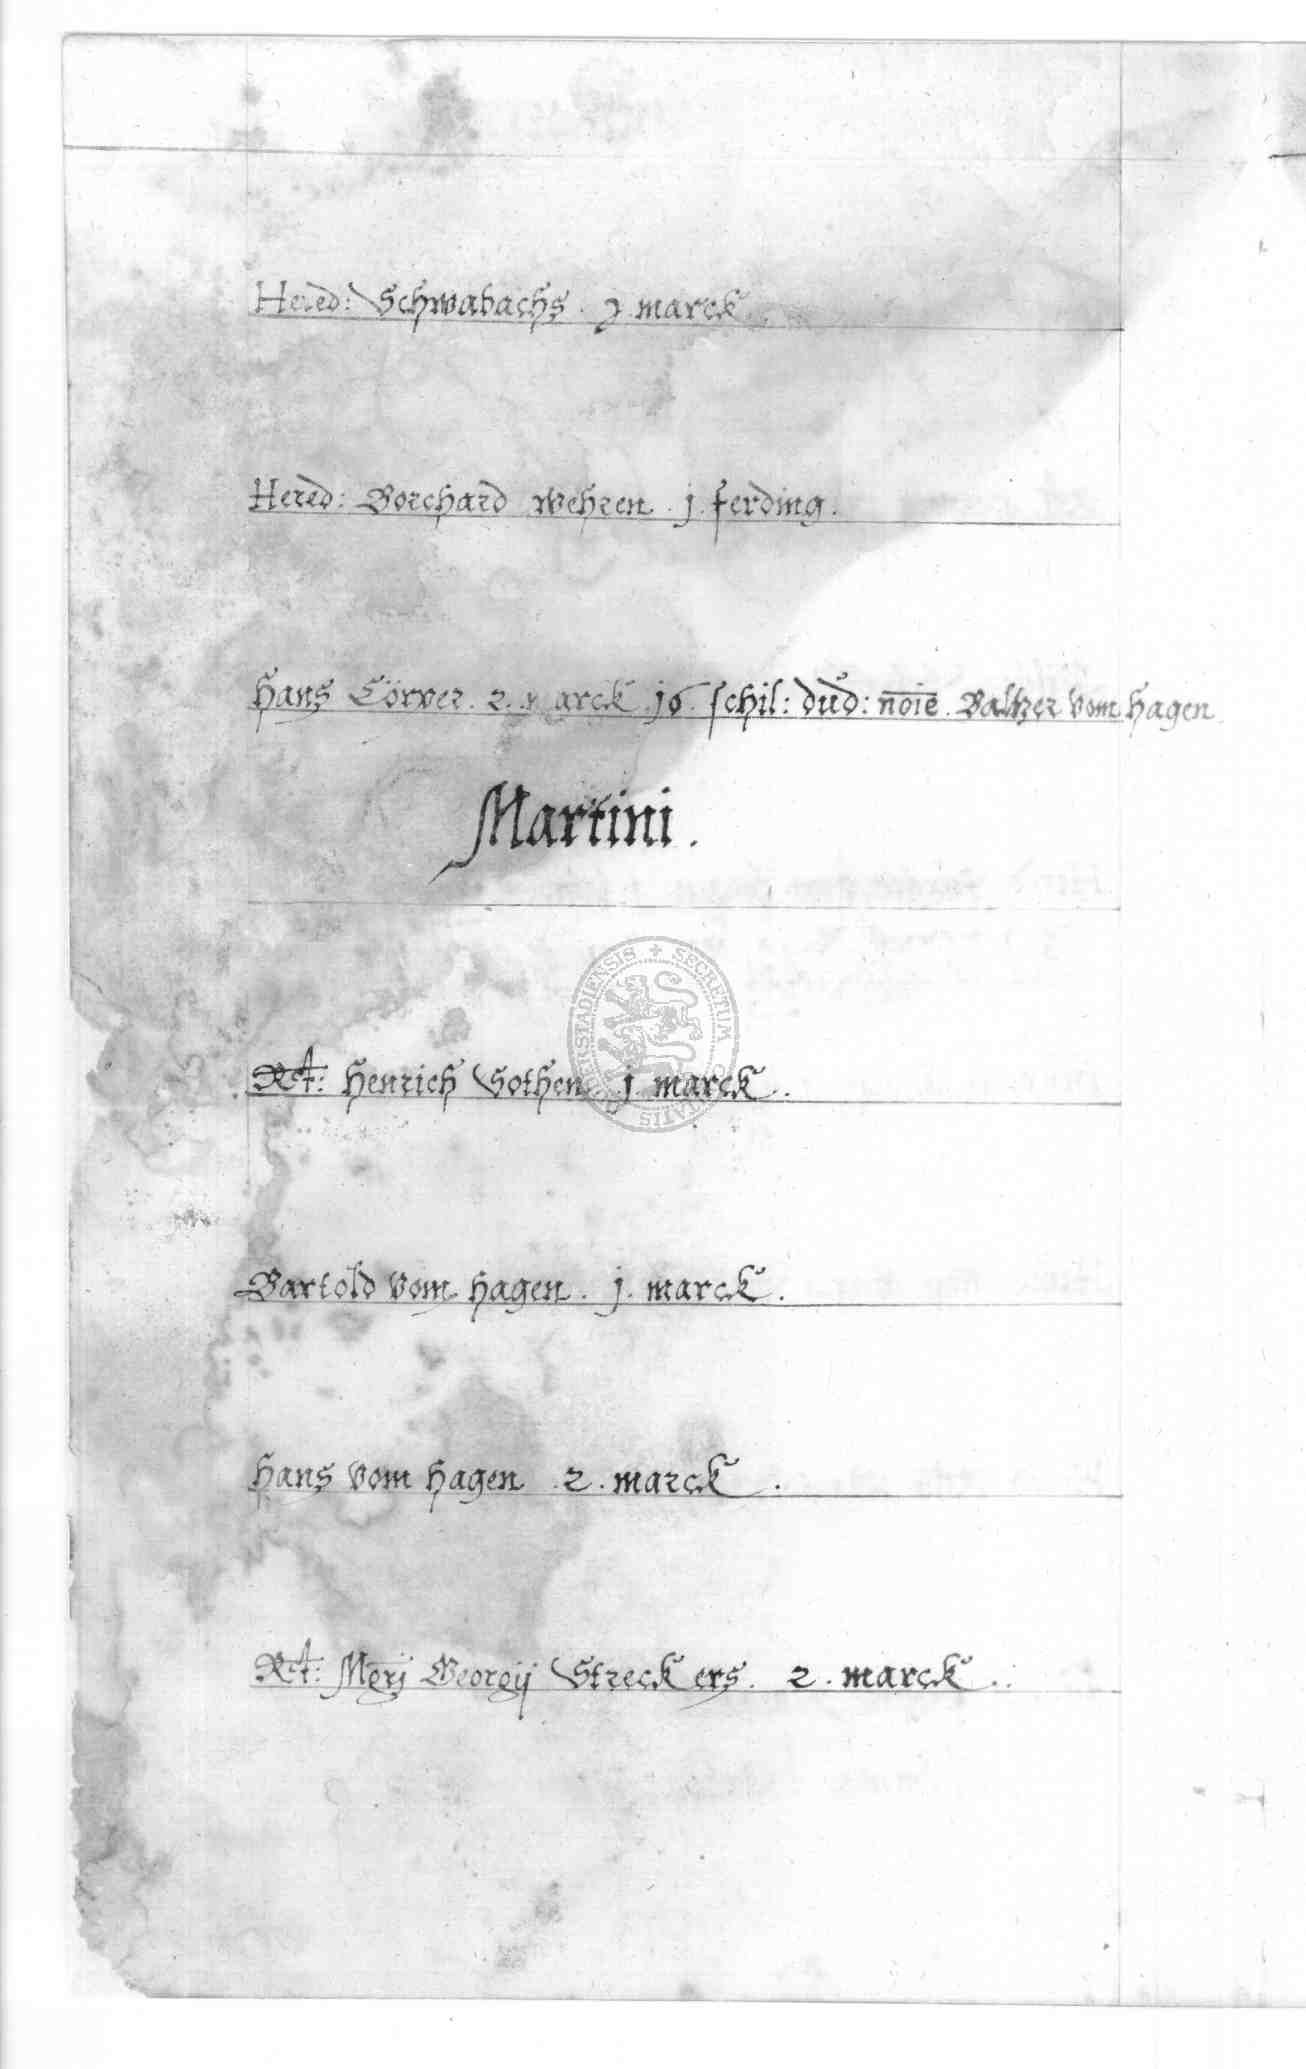 Hered: Schwabachs. j marck.
Hered: Borchard Wehren. j. ferding.
Hans Cörver. 2. marck. 16. schil: dud: noie. Baltzer vom Hagen
Martini.
SECRETUM
Rct: Henrich Sothen. j marck.
Bartold vom Hagen. j. marck.
Hans vom Hagen. 2. marck.
Rct: Mgrj Georgij Streckers. 2. marck.